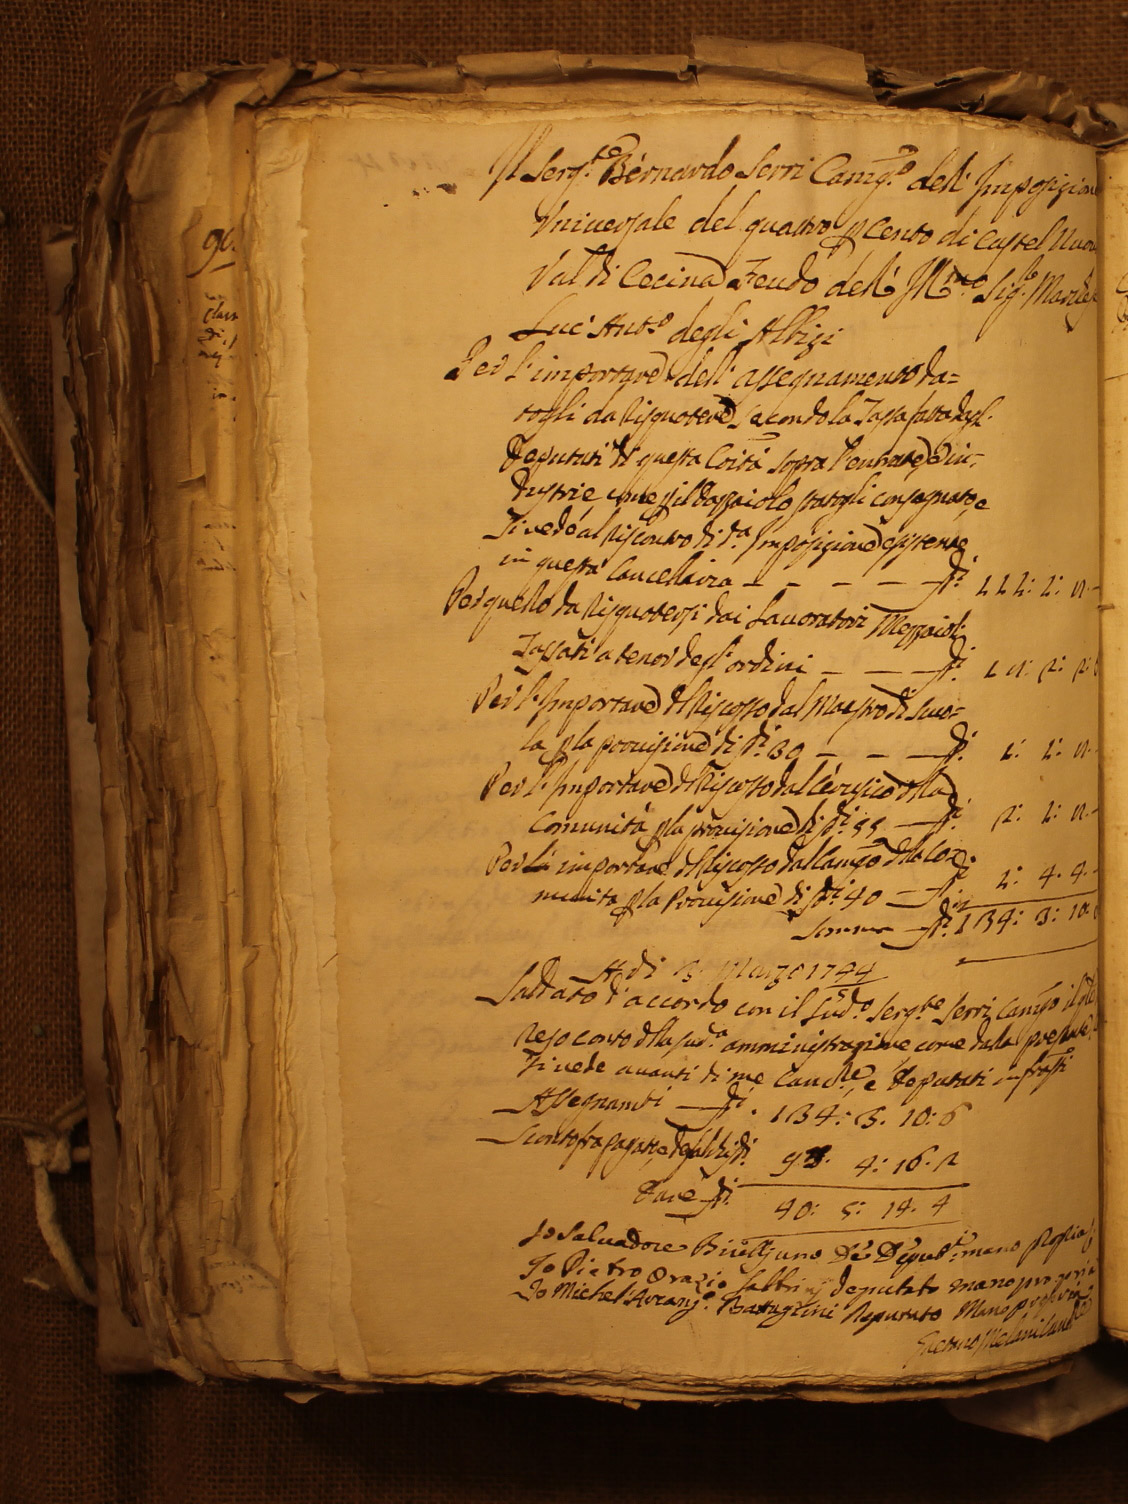 Il Serg.te Bernardo Serri Camg.o dell' Imposizione
Universale del quattro p Cento di Castel Nuovo
Val di Cecina Feudo dell' Ill.mo Sig.e
Luc' Ant.o degli Albizi
Per l'importare dell' assegnamento da=
togli da risquotere secondo la Tassa fatta dagl.
Deputati di questa Co.ità sopra l'entrate, e in=
dustrie come p il Dazzaiolo statogli consegnato, e
si vede al riscontro di d.a Imposizione esistente
in questa Cancelleria
Per quello da risquotersi dai Lavoratori Mezzaioli
Tassati a tenor degl' ordini
Per l'Importare d Riscosso dal Maestro di Scuo=
la p la provisione di 30
Per l'Importare d Riscosso dal Cerusico della
Comunità p la provisione di
Per l'importare d Riscosso dal Camg.o dlla Co=
munita p la Provisione di 40
Somma 134: 3: 10
A di 3. Marzo 1744
Saldato d'accordo con il Sud.o Serg.te Serri Camg.o il
reso conto dlla sud.a amministrazione come dalla presente
si vede avanti di me Canc.re, e Deputati infrasti
Assegnam.ti 134: 3. 10: 6
4: 16. 2
Dare 40: 5: 14. 4
Io Salvadore Deput. mano propia
Io Pietro Orazio deputato mano propria
Io Michel'Arcang.o Battaglini Deputato Mano propria
Gaetano